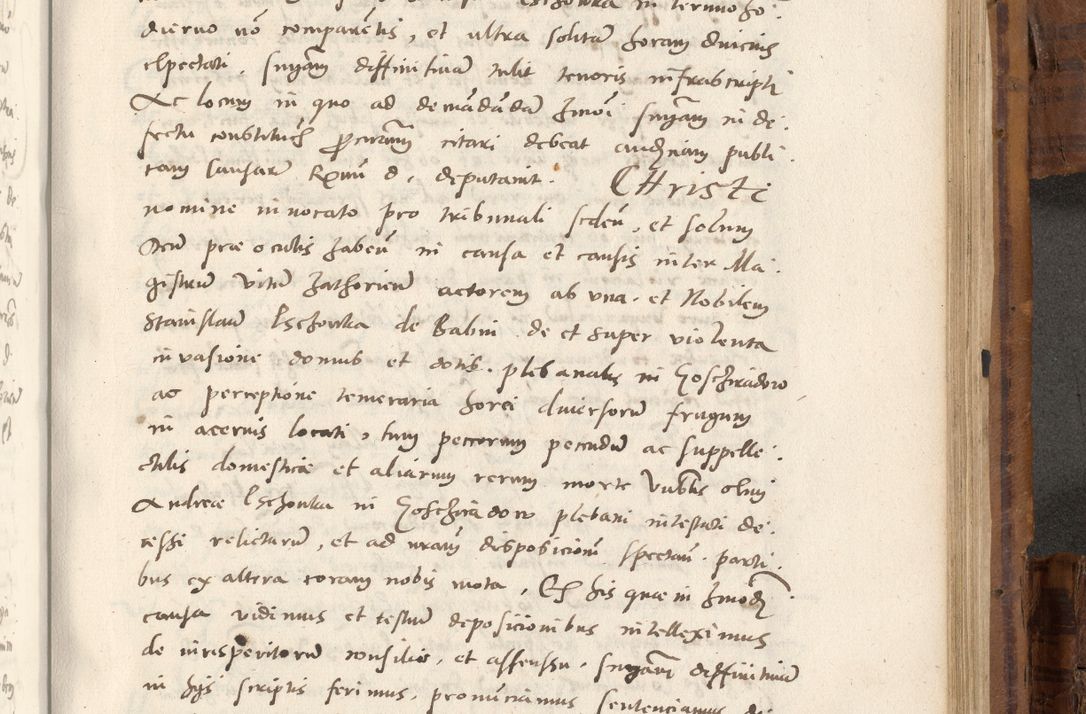 Eschowka in termino ho:
dierno nõ comparentis, et ultra solitam horam diucius
expectati, snyam diffinitivam tulit tenoris infrascripti
Ac locum in quo ad demãdãdã hmõi snyam in de:
fectu constituti procuratorem citari debeat audiensiam publi:
cam causarum Rmi d. deputavit. CHristi
nomine invocato pro tribunali seden, et solum
Deum præ oculis haben in causa et causis inter Ma:
gistrum Vitum actorem ab una, et Nobilem
Stanislaum Eschowka de Babin de et super violenta
invasione domus et dotis plebanalis in Goschiradoro
ac perceptione temeraria horei diversorum frugum
in acervis locati, tum peccorum pecudum ac suppelle:
ctilis domesticæ et aliarum rerum morte Vnbis olim
Andreæ Eschowka in Goschiradoro plebani intestati de:
cessi relictarum, et ad nram disposicionem spectan. parti:
bus ex altera coram nobis mota, Ex his quæ in hmodi
causa vidimus et testium deposicionibus intelleximus
de iurisperitorum consilio, et assensu, snyam diffinitivam
in hijs scriptis ferimus, pronunciamus sentenciamus de